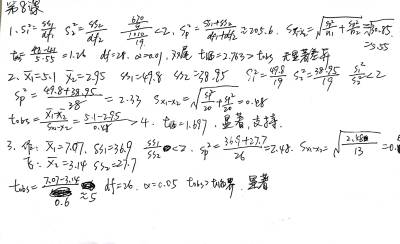 第8课
1. S₁²=SS₁/df₁ S₂²=SS₂/df₂ <2, Sp²=(SS₁+SS₂)/(df₁+df₂)=205.6. Sx̄₁-x̄₂=√(Sp²/n₁+Sp²/n₂)
=5.55
tobs= /5.55=1.26 df=28. α=0.01, 双尾 t临=2.763>tobs 无显著差异
2. x̄₁=5.1 x̄₂=2.95 SS₁=49.8 SS₂=38.95 S₁²=49.8/19 S₂²=38.95/19 S₁²/S₂²<2
Sp²=(49.8+38.95)/38=2.33 Sx̄₁-x̄₂=√(Sp²/20+Sp²/20)=0.48
tobs=(x̄₁-x̄₂)/Sx̄₁-x̄₂=(5.1-2.95)/0.48>4. t临=1.697. 显著,支持.
3. 作: x̄₁=7.07, SS₁=36.9 SS₁/SS₂<2. Sp²=(36.9+27.7)/26=2.48. Sx̄₁-x̄₂=
x̄₂=3.14 SS₂=27.7
tobs=(7.07-3.14)/0.6≈5 df=26. α=0.05 tobs>t临界. 显著